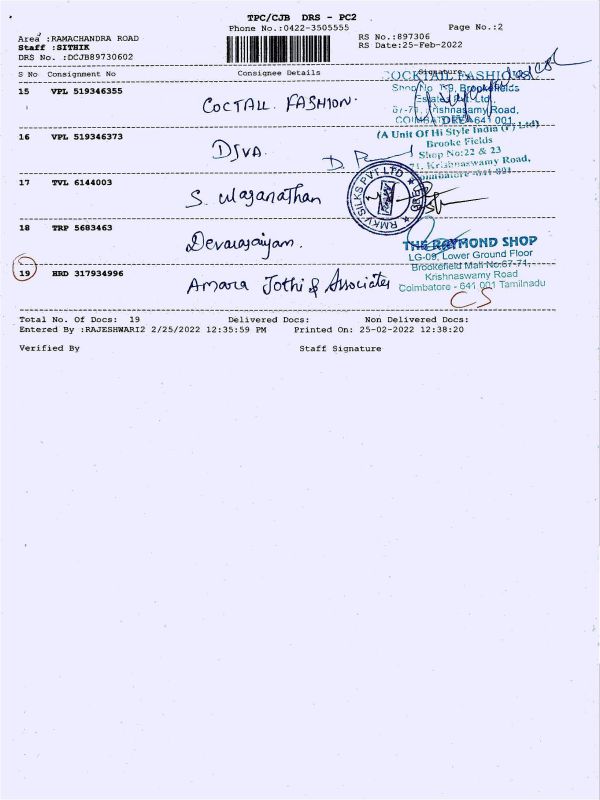 TPC/CJB DRS - PC2
Phone No.:0422-3505555
Page No.:2
Area :RAMACHANDRA ROAD
RS No.:897306
Staff :SITHIK
RS Date:25-Feb-2022
DRS No. :DCJB89730602
S No Consignment No Consignee Details Signature
COCKTAIL FASHIONS
15 VPL 519346355
COCTALL. FASHION.
Shop No Brookefields
Estates Pvt Ltd.,
67-71, Krishnasamy Road,
COIMBATORE-641 001
16 VPL 519346373
DIVA.
(A Unit Of Hi Style India (P) Ltd)
Brooke Fields
Shop No:22 & 23
71, Krishnaswamy Road,
Coimbatore -641 001
17 TVL 6144003
S. Ulaganathan
RMKV SILKS PVT LTD
18 TRP 5683463
THE RAYMOND SHOP
LG-09, Lower Ground Floor
Brookefield Mall No:67-71,
Krishnaswamy Road
Coimbatore - 641 001 Tamilnadu
19 HRD 317934996
Amara Jothi & Associates
CS
Total No. Of Docs: 19 Delivered Docs: Non Delivered Docs:
Entered By :RAJESHWARI2 2/25/2022 12:35:59 PM Printed On: 25-02-2022 12:38:20
Verified By Staff Signature